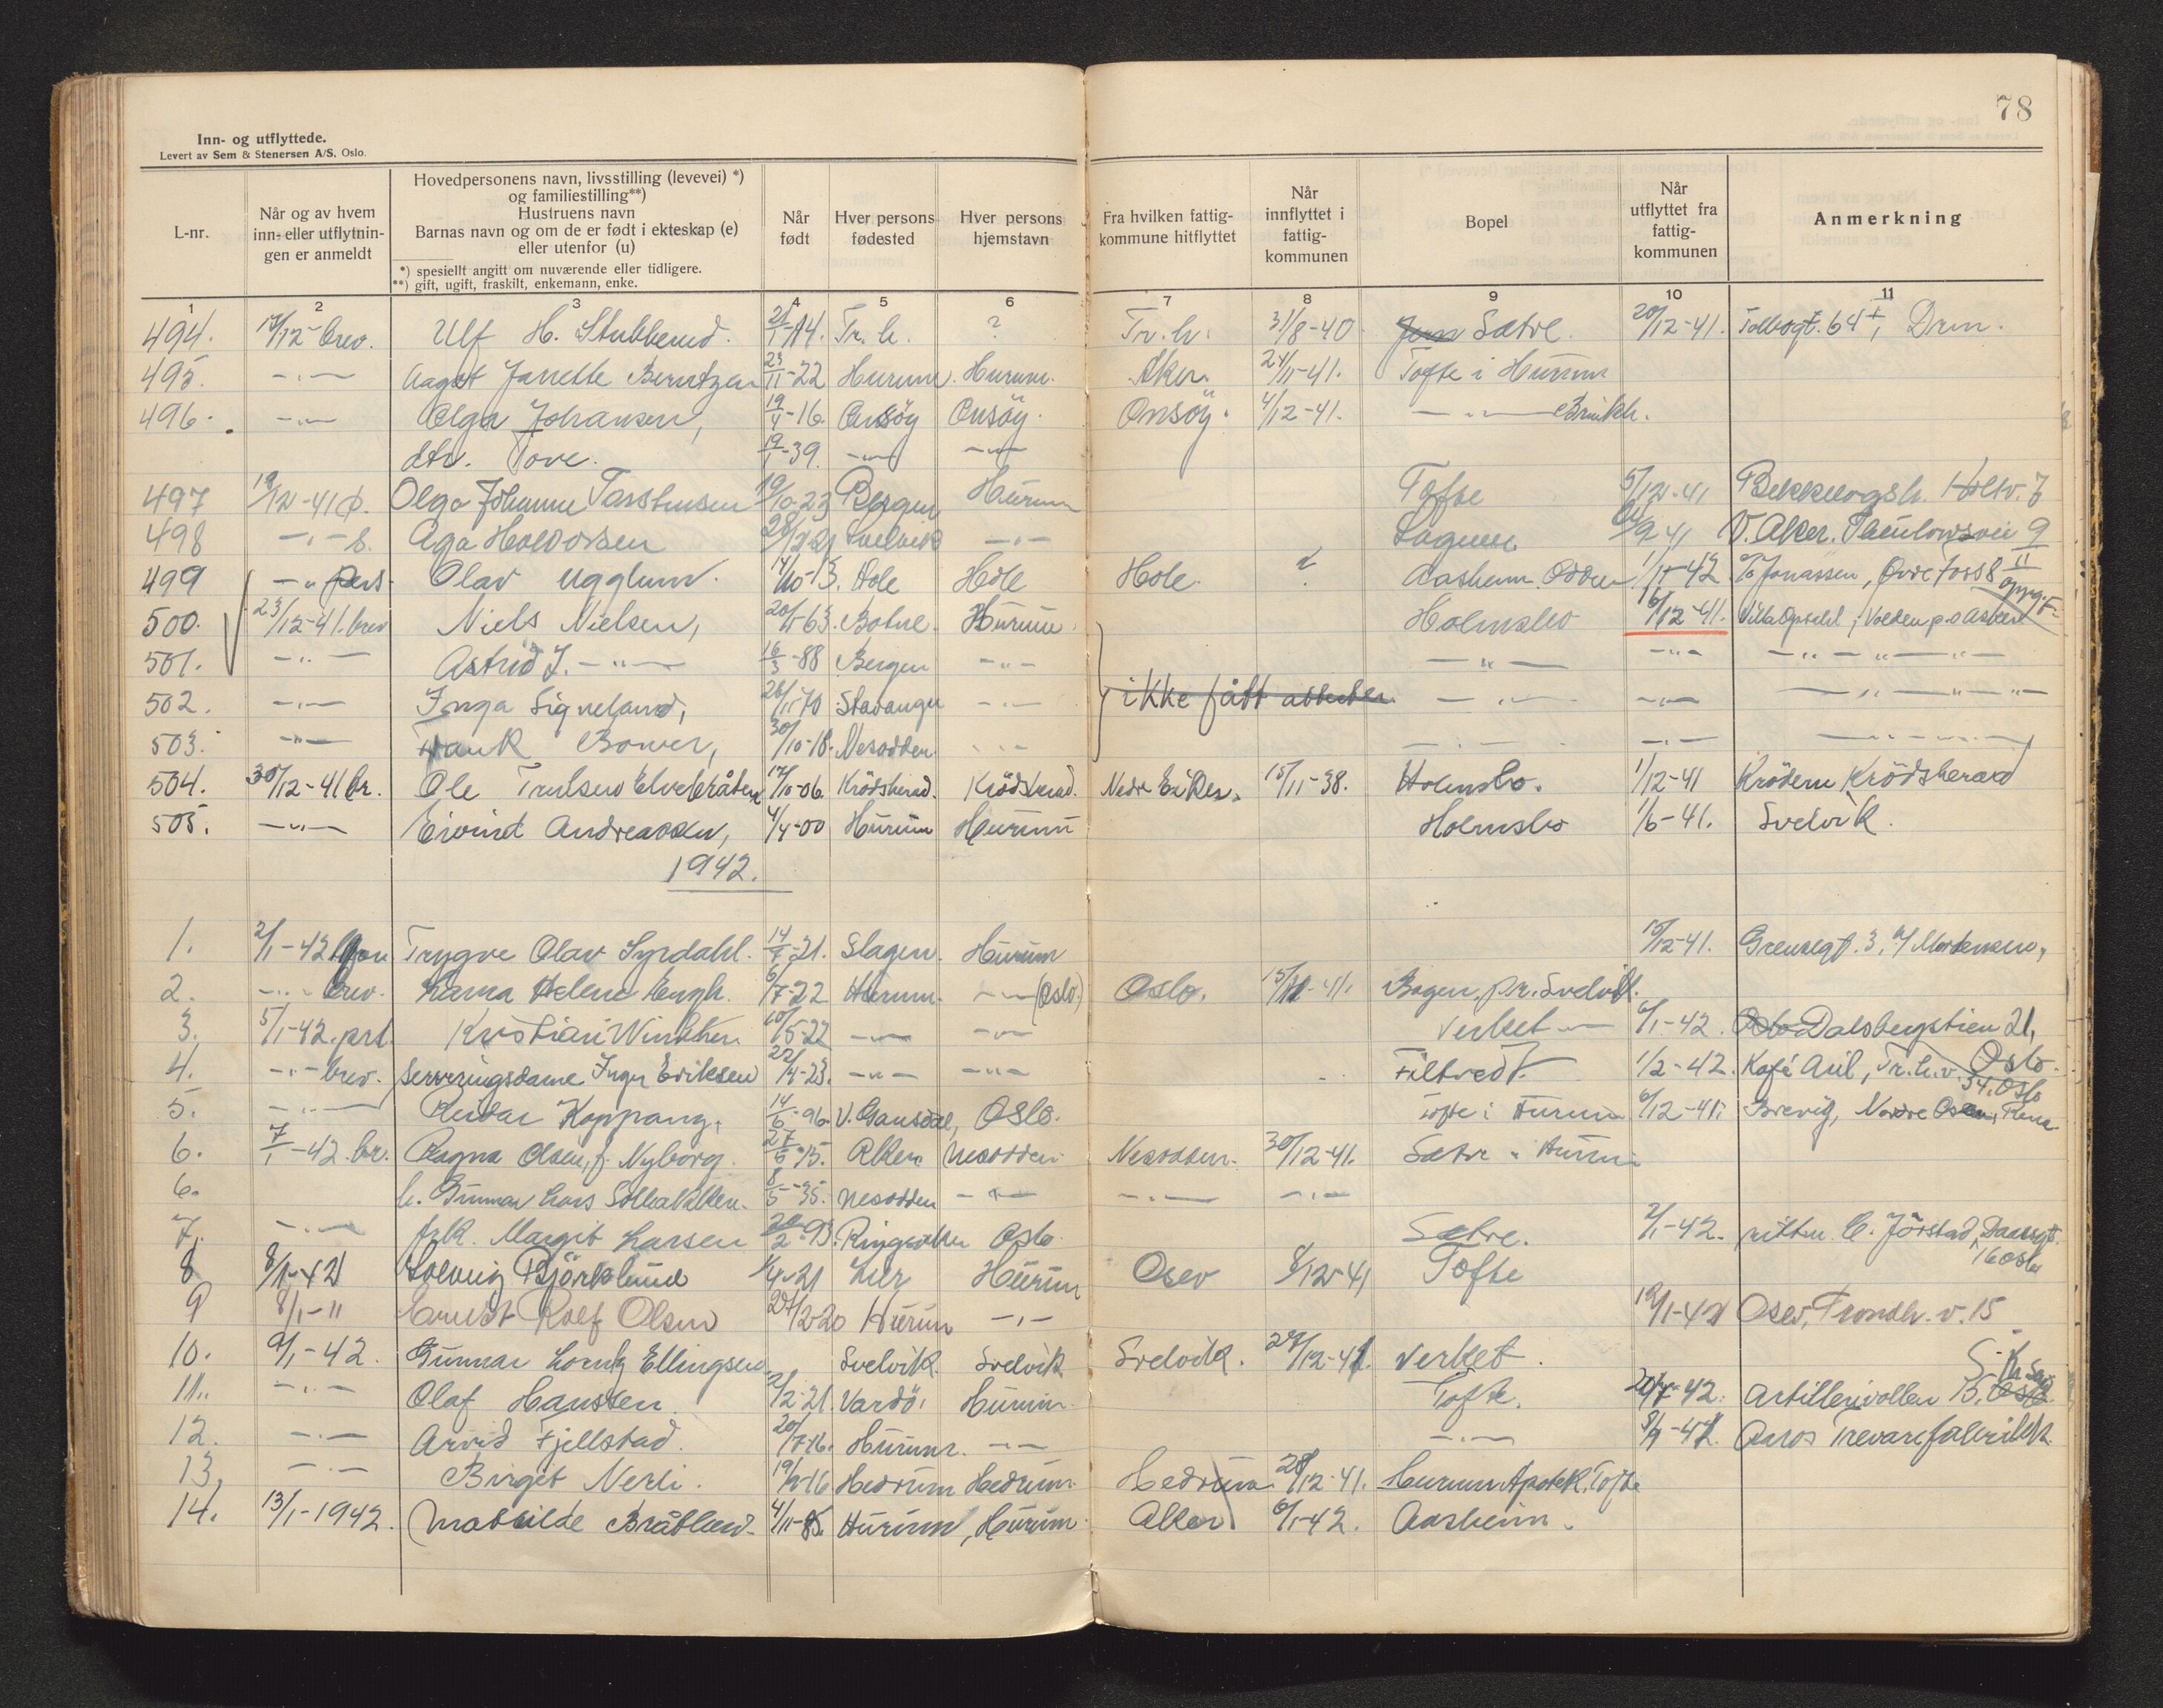 78
Inn- og utflyttede.
Levert av Sem & Stenersen A/S, Oslo.
L-nr. Når og av hvem inn- eller utflytnin- gen er anmeldt Hovedpersonens navn, livsstilling (levevei) *) og familiestilling**) Hustruens navn Barnas navn og om de er født i ekteskap (e) eller utenfor (u) *) spesiellt angitt om nuværende eller tidligere. **) gift, ugift, fraskilt, enkemann, enke. Når født Hver persons fødested Hver persons hjemstavn Fra hvilken fattig- kommune hitflyttet Når innflyttet i fattig- kommunen Bopel Når utflyttet fra fattig- kommunen Anmerkning
1 2 3 4 5 6 7 8 9 10 11
494. 17/12- brev. Ulf H. Stubberud. 21/1-14. Tr.h. ? Tr.h. 31/8-40 Sætre. 20/12-41. Tollbogt. 64 I, Drm.
495. -"- Aagot Janette Berntzen 23/11-22 Hurum. Hurum. Aker. 24/11-41. Tofte i Hurum
496. -"- Olga Johansen, 19/4-16. Onsöy Onsöy. Onsöy. 4/12-41. -"- Brukh.
dtr. Tove. 19/1-39. -"- -"-
497 19/12-41 Olga Johanne 19/10-23 Bergen Hurum Tofte 5/12-41 Bekkelagsh.
498 -"- Aga Halvorsen 28/12-21 Svelvik -"- 9 41 V. Aker. Thaulowsvei 9
499 -"- pers. Olav Ugglum. 14/10-13. Hole Hole Hole. ? Aasheim Odden 1/1-42 To Jonassen, Øvre Foss 8 II oppg. F.
500. 23/12-41. brev Niels Nielsen, 20/1-63. Botne. Hurum. Holmsbo 16/12-41. Villa Opsahl, Volden p.o Asker
501. -"- Astrid J. -"- 16/3-88 Bergen -"- -"- -"- -"- -"- -"-
502. -"- Inga Signeland, 26/11-70 Stavanger -"- ikke fått attester. -"- -"- -"- -"- -"-
503. -"- Frank Bower, 30/10-18. Nesodden. -"- -"- -"- -"-
504. 30/12-41 br. Ole Trulsen Elvebråten 17/10-06. Krödsherad. Krödsherad. Nedre Eiker. 15/11-38. Holmsbo. 1/12-41 Krödern Krödsherad
505. -"- Eivind Andreassen, 4/4-00 Hurum Hurum Holmsbo 1/6-41. Svelvik.
1942.
1. 2/1-42 Trygve Olav Syrdahl. 14/7-21. Slagen. Hurum 15/12-41. Grensegt. 3, b/ Mortensen,
2. -"- brev. Helene Engh. 6/7-22 Hurum. -"- (Oslo.) Oslo. 15/11-41. Bogen. pr. Svelvik.
3. 5/1-42. prt. Kristian Winther 10/5-22 -"- -"- Verket -"- 6/1-42. Oslo Dalsbergstien 21,
4. -"- brev. Serveringsdame Inger Eriksen 22/4-23. -"- -"- Filtvedt. 1/2-42. Kafé Aril, Tr.h.v. 34. Oslo
5. -"- Reidar Koppang, 14/6-96. V. Gausdal, Oslo. Tofte i Hurum 6/12-41. Brevig, Nordre Osen, Rena
6. 7/1-42. br. Ragna Olsen, f. Nyborg. 27/6-15. Aker Nesodden Nesodden. 30/12-41. Sætre i Hurum
6. b. Gunnar Lars Solbakken. 8/5-35. Nesodden -"- -"- -"-
7. -"- frk. Margit Larsen 2-93. Ringsaker Oslo. Sætre. 2/1-42. C. Jörstad, Daasgt. 16 Oslo
8 8/1-42 Solveig Björklund 1/4-21 Lier Hurum Oslo 8/12-41 Tofte
9 8/1-11 Rolf Olsen 27/12-20 Hurum -"- 19/1-42 Oslo, Trondh. v. 15
10. 9/1-42. Gunnar Lorntz Ellingsen Svelvik. Svelvik Svelvik. 27/12-41. Verket.
11. -"- Olaf Hansten. 2/12-21. Vardö, Hurum. Tofte. 20/4-42. Artillerivollen
12. -"- Arvid Fjellstad. 20/7-16. Hurum. -"- -"- Trevarefabrikk.
13. -"- Birget Nerli. Hedrum Hedrum. Hedrum. 28/12-41. Hurum Apotek, Tofte
14. 13/1-1942. Mathilde Bråtlund. 4/11-85. Hurum, Hurum. Aker 6/1-42. Aasheim.